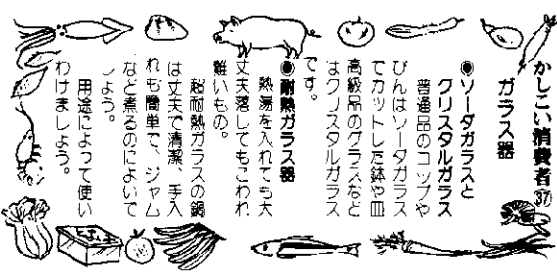 かしこい消費者㊲
ガラス器
●ソーダガラスと
クリスタルガラス
普通品のコップや
びんはソーダガラス
でカットした鉢や皿
高級品のグラスなど
はクリスタルガラス
です。
●耐熱ガラス器
熱湯を入れても大
丈夫落してもこわれ
難いもの。
超耐熱ガラスの鍋
は丈夫で清潔、手入
れも簡単で、ジャム
など煮るのによいで
しょう。
用途によって使い
わけましょう。